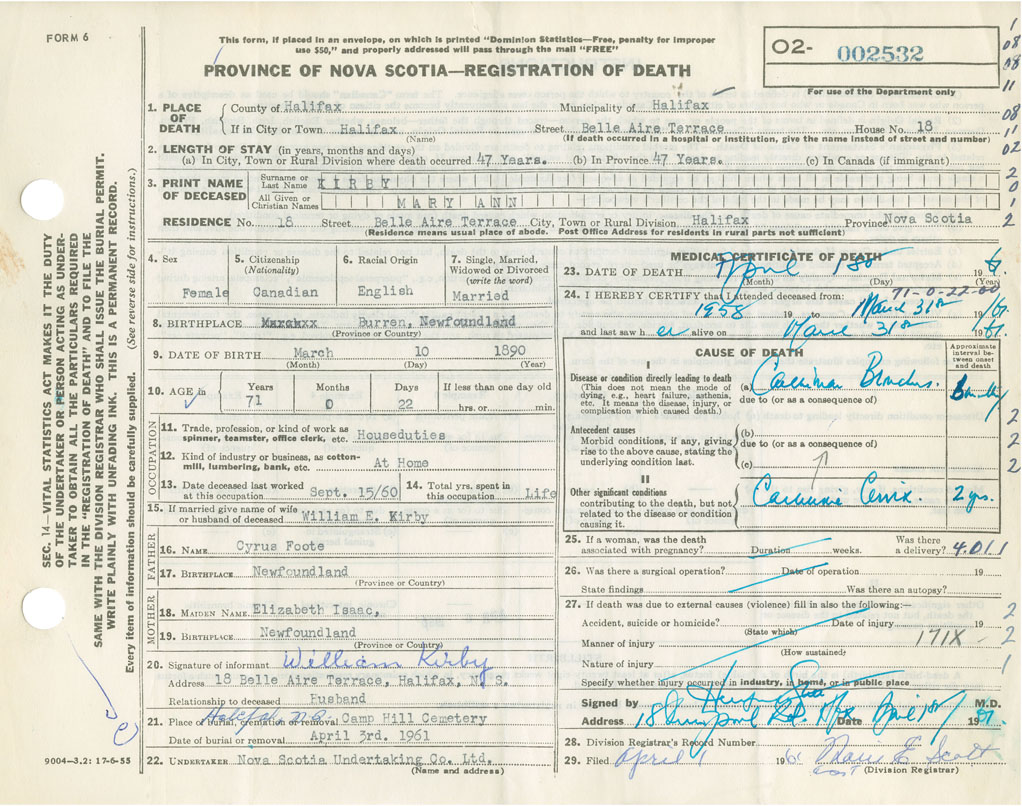 FORM 6
This form, if placed in an envelope, on which is printed "Dominion Statistics—Free, penalty for improper
use $50," and properly addressed will pass through the mail "FREE"
PROVINCE OF NOVA SCOTIA—REGISTRATION OF DEATH
O2- 002532
For use of the Department only
1. PLACE OF DEATH
County of Halifax Municipality of Halifax
If in City or Town Halifax Street Belle Aire Terrace House No. 18
(Name) (If death occurred in a hospital or institution, give the name instead of street and number)
2. LENGTH OF STAY (in years, months and days)
(a) In City, Town or Rural Division where death occurred 47 Years. (b) In Province 47 Years. (c) In Canada (if immigrant)
3. PRINT NAME OF DECEASED
Surname or Last Name KIRBY
All Given or Christian Names MARY ANN
RESIDENCE No. 18 Street Belle Aire Terrace City, Town or Rural Division Halifax Province Nova Scotia
(Residence means usual place of abode. Post Office Address for residents in rural parts not sufficient)
4. Sex
Female
5. Citizenship
(Nationality)
Canadian
6. Racial Origin
English
7. Single, Married,
Widowed or Divorced
(write the word)
Married
8. BIRTHPLACE Marchxx Burren, Newfoundland
(Province or Country)
9. DATE OF BIRTH March 10 1890
(Month) (Day) (Year)
10. AGE in
Years Months Days If less than one day old
71 0 22 hrs. or min.
OCCUPATION
11. Trade, profession, or kind of work as
spinner, teamster, office clerk, etc. Houseduties
12. Kind of industry or business, as cotton-
mill, lumbering, bank, etc. At Home
13. Date deceased last worked
at this occupation Sept. 15/60
14. Total yrs. spent in
this occupation Life
15. If married give name of wife
or husband of deceased William E. Kirby
FATHER
16. NAME Cyrus Foote
17. BIRTHPLACE Newfoundland
(Province or Country)
MOTHER
18. MAIDEN NAME Elizabeth Isaac,
19. BIRTHPLACE Newfoundland
(Province or Country)
20. Signature of informant William Kirby
Address 18 Belle Aire Terrace, Halifax, N. S.
Relationship to deceased Husband
21. Place of burial, cremation or removal Halifax N.S. Camp Hill Cemetery
Date of burial or removal April 3rd. 1961
22. UNDERTAKER Nova Scotia Undertaking Co. Ltd.
(Name and address)
9004-3.2: 17-6-55
MEDICAL CERTIFICATE OF DEATH
23. DATE OF DEATH April 1st 19 61
(Month) (Day) (Year)
71-0-22-00
24. I HEREBY CERTIFY that I attended deceased from:
1958 19 to March 31st 19 61
and last saw h er alive on March 31st 19 61.
CAUSE OF DEATH
Approximate
interval be-
tween onset
and death
I
Disease or condition directly leading to death
(This does not mean the mode of
dying, e.g., heart failure, asthenia,
etc. It means the disease, injury, or
complication which caused death.)
(a)
due to (or as a consequence of)
Antecedent causes
Morbid conditions, if any, giving
rise to the above cause, stating the
underlying condition last.
(b)
due to (or as a consequence of)
(c)
II
Other significant conditions
contributing to the death, but not
related to the disease or condition
causing it.
Cervix 2 yrs.
25. If a woman, was the death
associated with pregnancy? Duration weeks. Was there
a delivery? 4011
26. Was there a surgical operation? Date of operation 19
State findings Was there an autopsy?
27. If death was due to external causes (violence) fill in also the following:—
Accident, suicide or homicide? Date of injury 19
(State which)
Manner of injury 171X
(How sustained)
Nature of injury
Specify whether injury occurred in industry, in home, or in public place
Signed by M.D.
Address 18 Date April 1st 19 61
28. Division Registrar's Record Number
29. Filed April 1 19 61 Marie E Scott
(Division Registrar)
SEC. 14—VITAL STATISTICS ACT MAKES IT THE DUTY
OF THE UNDERTAKER OR PERSON ACTING AS UNDER-
TAKER TO OBTAIN ALL THE PARTICULARS REQUIRED
IN THE "REGISTRATION OF DEATH" AND TO FILE THE
SAME WITH THE DIVISION REGISTRAR WHO SHALL ISSUE THE BURIAL PERMIT.
WRITE PLAINLY WITH UNFADING INK. THIS IS A PERMANENT RECORD.
Every item of information should be carefully supplied. (See reverse side for instructions.)
1
08
08
11
08
11
02
2
0
1
2
2
2
2
2
2
1